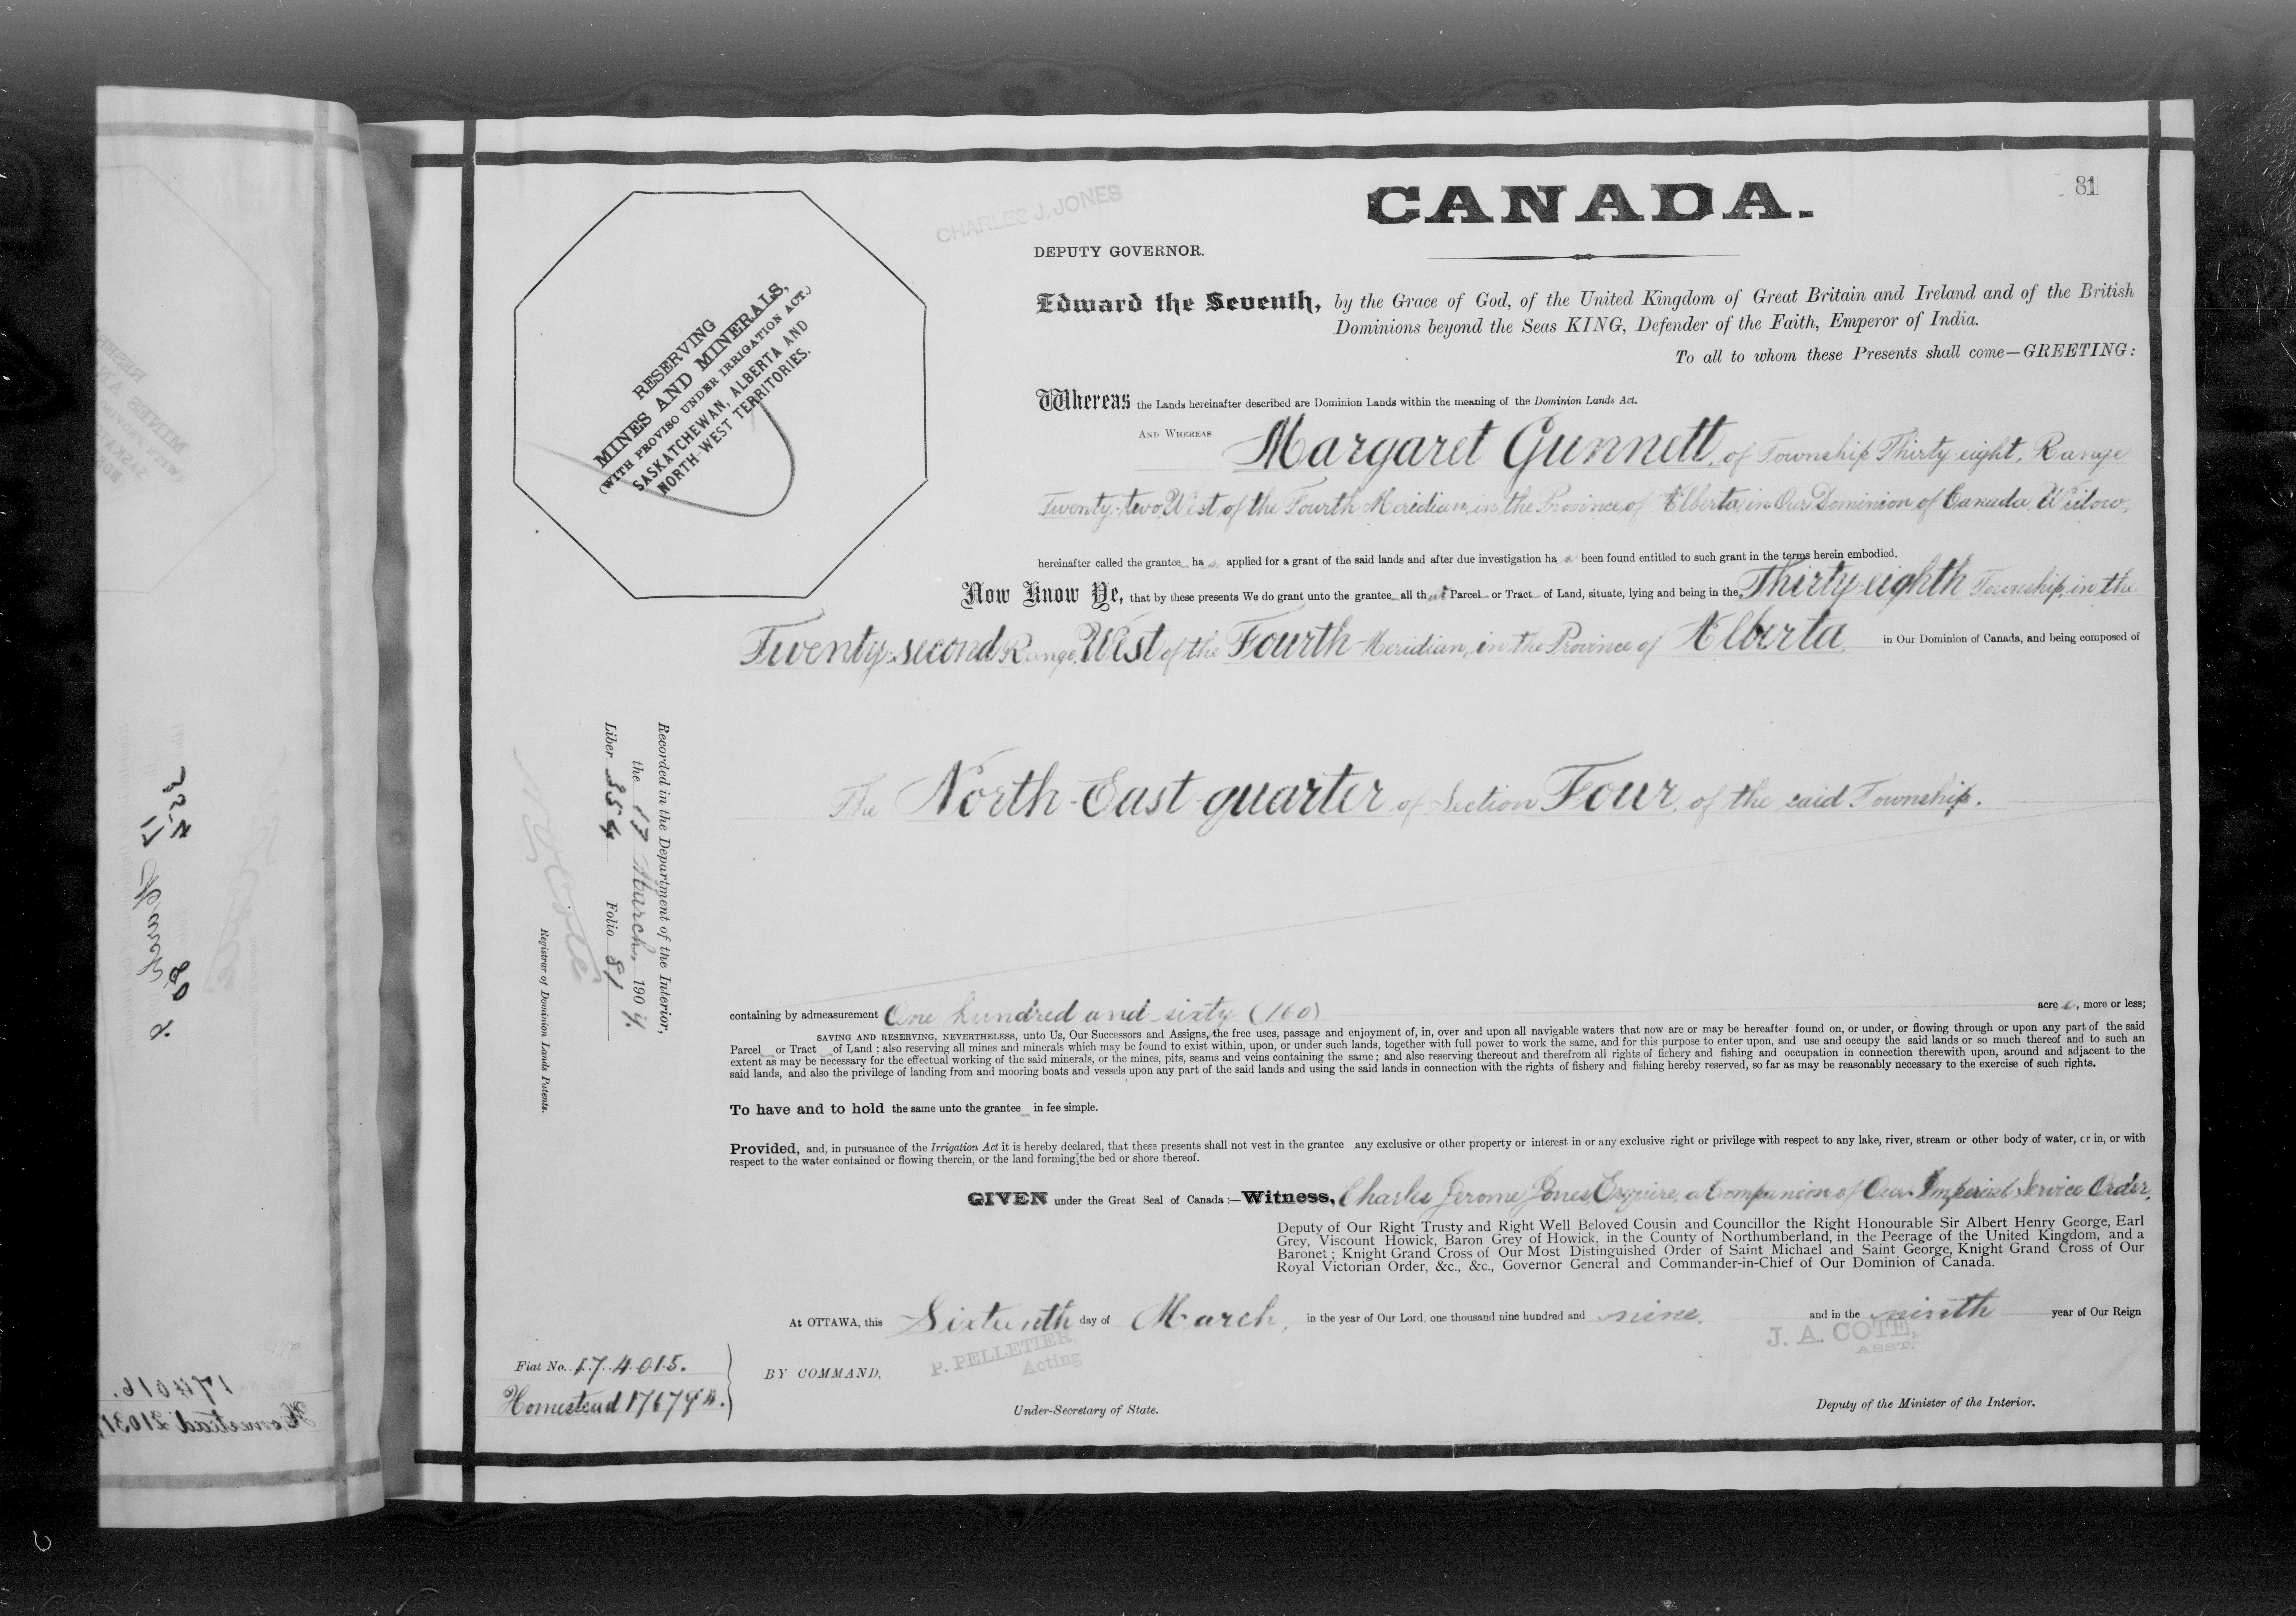 81
CANADA.
CHARLES J. JONES
DEPUTY GOVERNOR.
RESERVING
MINES AND MINERALS,
(WITH PROVISO UNDER IRRIGATION ACT.)
SASKATCHEWAN, ALBERTA AND
NORTH-WEST TERRITORIES.
Edward the Seventh, by the Grace of God, of the United Kingdom of Great Britain and Ireland and of the British
Dominions beyond the Seas KING, Defender of the Faith, Emperor of India.
To all to whom these Presents shall come—GREETING:
Whereas the Lands hereinafter described are Dominion Lands within the meaning of the Dominion Lands Act.
AND WHEREAS Margaret Gunnett, of Township Thirty eight, Range
Twenty-two West of the Fourth Meridian, in the Province of Alberta, in Our Dominion of Canada, Widow,
hereinafter called the grantee has applied for a grant of the said lands and after due investigation has been found entitled to such grant in the terms herein embodied.
Now Know Ye, that by these presents We do grant unto the grantee all that Parcel or Tract of Land, situate, lying and being in the Thirty eighth Township, in the
Twenty-second Range, West of the Fourth Meridian, in the Province of Alberta in Our Dominion of Canada, and being composed of
The North-East-quarter of Section Four, of the said Township.
Recorded in the Department of the Interior,
the 17 March, 190
Liber 354 Folio 81
Registrar of Dominion Lands Patents.
containing by admeasurement One hundred and sixty (160) acres, more or less;
SAVING AND RESERVING, NEVERTHELESS, unto Us, Our Successors and Assigns, the free uses, passage and enjoyment of, in, over and upon all navigable waters that now are or may be hereafter found on, or under, or flowing through or upon any part of the said
Parcel or Tract of Land ; also reserving all mines and minerals which may be found to exist within, upon, or under such lands, together with full power to work the same, and for this purpose to enter upon, and use and occupy the said lands or so much thereof and to such an
extent as may be necessary for the effectual working of the said minerals, or the mines, pits, seams and veins containing the same ; and also reserving thereout and therefrom all rights of fishery and fishing and occupation in connection therewith upon, around and adjacent to the
said lands, and also the privilege of landing from and mooring boats and vessels upon any part of the said lands and using the said lands in connection with the rights of fishery and fishing hereby reserved, so far as may be reasonably necessary to the exercise of such rights.
To have and to hold the same unto the grantee in fee simple.
Provided, and, in pursuance of the Irrigation Act it is hereby declared, that these presents shall not vest in the grantee any exclusive or other property or interest in or any exclusive right or privilege with respect to any lake, river, stream or other body of water, or in, or with
respect to the water contained or flowing therein, or the land forming the bed or shore thereof.
GIVEN under the Great Seal of Canada :—Witness, Charles Jerome Jones, Esquire, a Companion of Our Imperial Service Order,
Deputy of Our Right Trusty and Right Well Beloved Cousin and Councillor the Right Honourable Sir Albert Henry George, Earl
Grey, Viscount Howick, Baron Grey of Howick, in the County of Northumberland, in the Peerage of the United Kingdom, and a
Baronet ; Knight Grand Cross of Our Most Distinguished Order of Saint Michael and Saint George, Knight Grand Cross of Our
Royal Victorian Order, &c., &c., Governor General and Commander-in-Chief of Our Dominion of Canada.
At OTTAWA, this Sixteenth day of March, in the year of Our Lord, one thousand nine hundred and nine. and in the ninth year of Our Reign
P. PELLETIER,
Acting
J. A. COTE,
ASST.
Fiat No. 174015.
BY COMMAND,
Homestead
Under-Secretary of State.
Deputy of the Minister of the Interior.